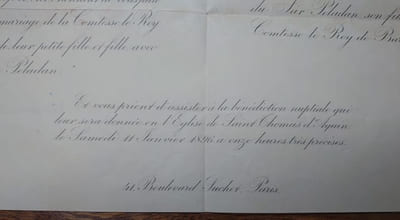 du Sar Peladan, son fils
mariage de la Comtesse le Roy
Comtesse le Roy de Bar
de leur petite fille et fille, avec
Peladan
Et vous prient d'assister à la bénédiction nuptiale qui
leur sera donnée en l'Eglise de Saint Thomas d'Aquin
le Samedi 11 Janvier 1896 à onze heures très précises.
41, Boulevard Suchet, Paris.